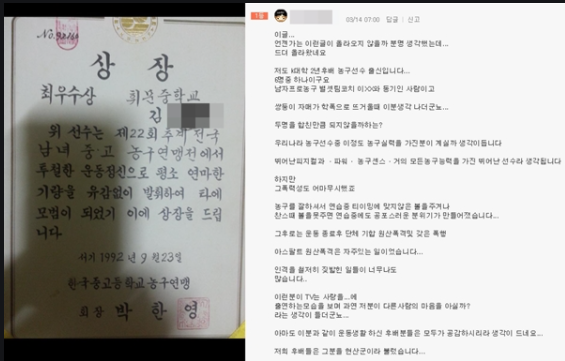 상 장
최우수상 휘문중학교
김
위 선수는 제22회 추계 전국
남녀 중·고 농구연맹전에서
투철한 운동정신으로 평소 연마한
기량을 유감없이 발휘하여 타에
모범이 되었기 이에 상장을 드립
니다
서기 1992년 9월 23일
한국중고등학교농구연맹
회장 박한영
03/14 07:00 답글 신고
이글...
언젠가는 이런글이 올라오지 않을까 분명 생각했는데...
드더 올라왔네요
저도 k대학 2년후배 농구선수 출신입니다...
중 하나이구요
남자프로농구 벌셋팀코치 이>>와 동기인 사람이고
쌍둥이 자매가 학폭으로 뜨거울때 이분생각 나더군뇨...
두명을 합친만큼 되지않을까하는?
우리나라 농구선수중 이정도 농구실력을 가진분이 계실까 생각이듭니다
뛰어난피지컬과 · 파워 · 농구센스 · 거의 모든농구능력을 가진 뛰어난 선수라 생각됩니다
하지만
그폭력성도 어마무시했죠
농구를 잘하셔서 연습중 타이밍에 맞지않은 볼을주거나
찬스때 볼을못주면 연습중에도 공포스러운 분위기가 만들어젔습니다...
그후로는 운동 종료후 단체 기합 원산폭격및 갖은 폭행
아스팔트 원산폭격은 자주있는 일이었습니다...
인격을 철저히 짓밟힌 일들이 너무나도
많습니다..
이런분이 TV는 사랑을...에
출연하는모습을 보며 과연 저분이 다른사람의 마음을 아실까?
라는 생각이 들더군뇨...
아마도 이분과 같이 운동생활 하신 후배분들은 모두가 공감하시리라 생각이 드네요...
저희 후배들은 그분을 현산군이라 불렀습니다...